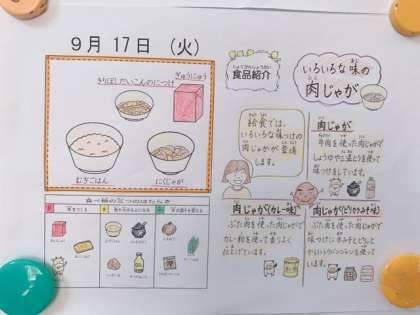 9月17日（火）
きりぼしだいこんのにつけ
ぎゅうにゅう
むぎごはん
にくじゃが
食べ物の三つのはたらき
しょくひんしょうかい
食品紹介
いろいろな味の
肉じゃが
給食では、
いろいろな味つけの
肉じゃが が登場
します。
肉じゃが
牛肉を使った肉じゃがで
しょうゆや三温とうを使って
味つけをしています。
肉じゃが(カレー味)
ぶた肉を使った肉じゃがで
カレー粉を使って香りよく
仕上げています。
肉じゃが(ピリカラみそ味)
ぶた肉を使った肉じゃがで
味つけに赤みそとピリッと
からいトウバンジャンを使って
います。